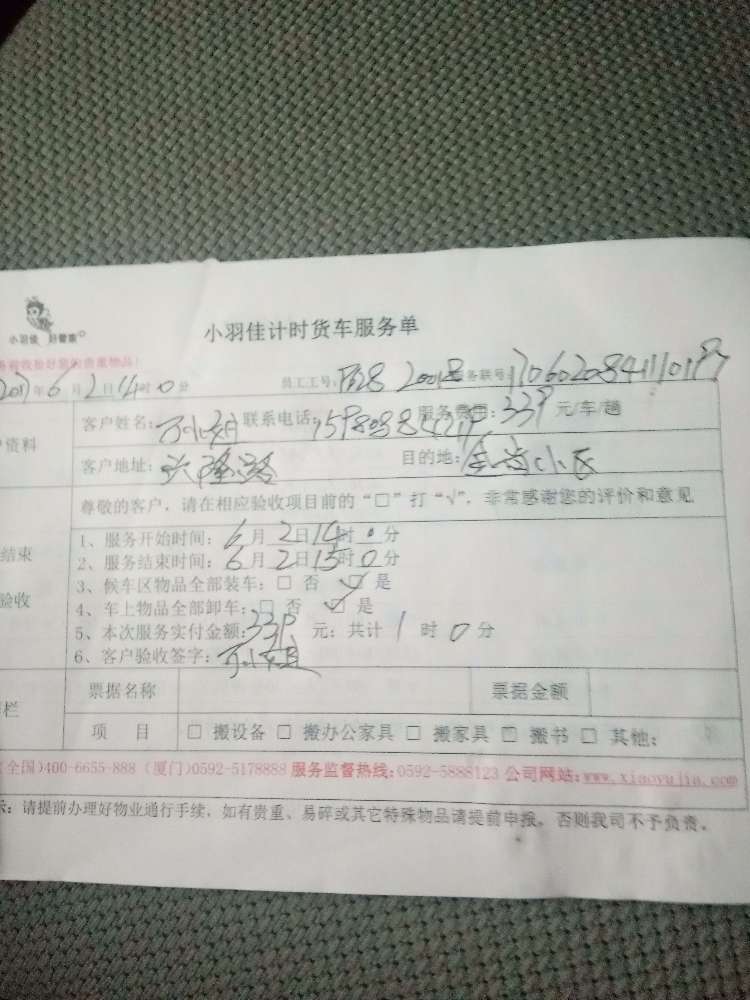 小羽佳 好管家
小羽佳计时货车服务单
2017年6月2日14时0分 员工工号: 务联号:
客户姓名: 联系电话: 服务费用:339元/车/趟
户资料
客户地址:兴隆路 目的地:金尚小区
尊敬的客户，请在相应验收项目前的“□”打“√”，非常感谢您的评价和意见
1、服务开始时间:6月2日14时0分
结束
2、服务结束时间:6月2日15时0分
3、候车区物品全部装车:□ 否 □ 是
验收
4、车上物品全部卸车:□ 否 □ 是
5、本次服务实付金额:339元;共计1时0分
6、客户验收签字:
票据名称 票据金额
栏
项 目 □ 搬设备 □ 搬办公家具 □ 搬家具 □ 搬书 □ 其他:
(全国)400-6655-888 (厦门)0592-5178888 服务监督热线:0592-5888123 公司网站:www.xiaoyujia.com
示:请提前办理好物业通行手续，如有贵重、易碎或其它特殊物品请提前申报，否则我司不予负责。